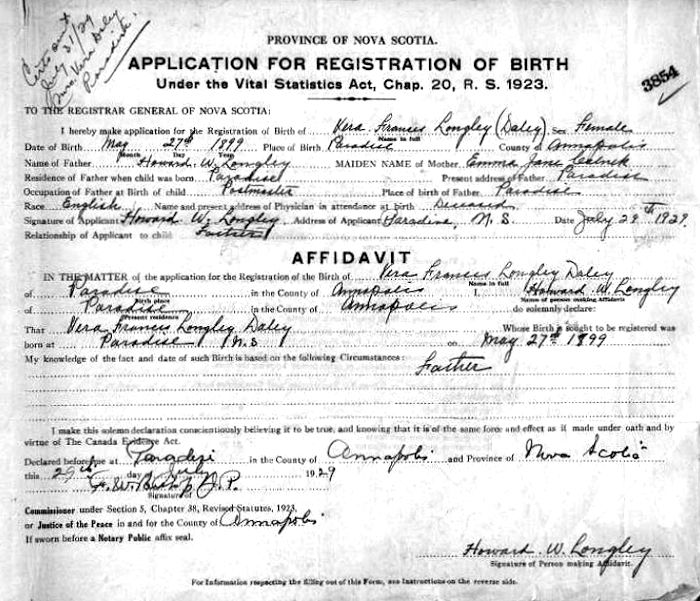 Certs sent
July 31/29
Mrs. Vera Daley
Paradise
PROVINCE OF NOVA SCOTIA.
APPLICATION FOR REGISTRATION OF BIRTH
Under the Vital Statistics Act, Chap. 20, R. S. 1923.
3854
TO THE REGISTRAR GENERAL OF NOVA SCOTIA:
I hereby make application for the Registration of Birth of Vera Frances Longley (Daley) Sex Female
Name in full
Date of Birth May 27th 1899 Place of Birth Paradise County of Annapolis
Month Day Year
Name of Father Howard W. Longley MAIDEN NAME of Mother Emma Jane
Residence of Father when child was born Paradise Present address of Father Paradise
Occupation of Father at Birth of child Postmaster Place of birth of Father Paradise
Race English Name and present address of Physician in attendance at birth Deceased
Signature of Applicant Howard W. Longley Address of Applicant Paradise, N. S. Date July 29th 1929.
Relationship of Applicant to child Father
AFFIDAVIT
IN THE MATTER of the application for the Registration of the Birth of Vera Frances Longley Daley
Name in full
of Paradise in the County of Annapolis I, Howard W. Longley
Birth place Name of person making Affidavit
of Paradise in the County of Annapolis do solemnly declare:
Present residence
That Vera Frances Longley Daley Whose Birth is sought to be registered was
born at Paradise N.S on May 27th 1899
My knowledge of the fact and date of such Birth is based on the following Circumstances:
Father
I make this solemn declaration conscientiously believing it to be true, and knowing that it is of the same force and effect as if made under oath and by
virtue of The Canada Evidence Act.
Declared before me at Paradise in the County of Annapolis and Province of Nova Scotia
this 29th day of July 1929
Bishop J.P.
Signature of
Commissioner under Section 5, Chapter 38, Revised Statutes, 1923,
or Justice of the Peace in and for the County of Annapolis
If sworn before a Notary Public affix seal.
Howard W. Longley
Signature of Person making Affidavit.
For Information respecting the filling out of this Form, see Instructions on the reverse side.